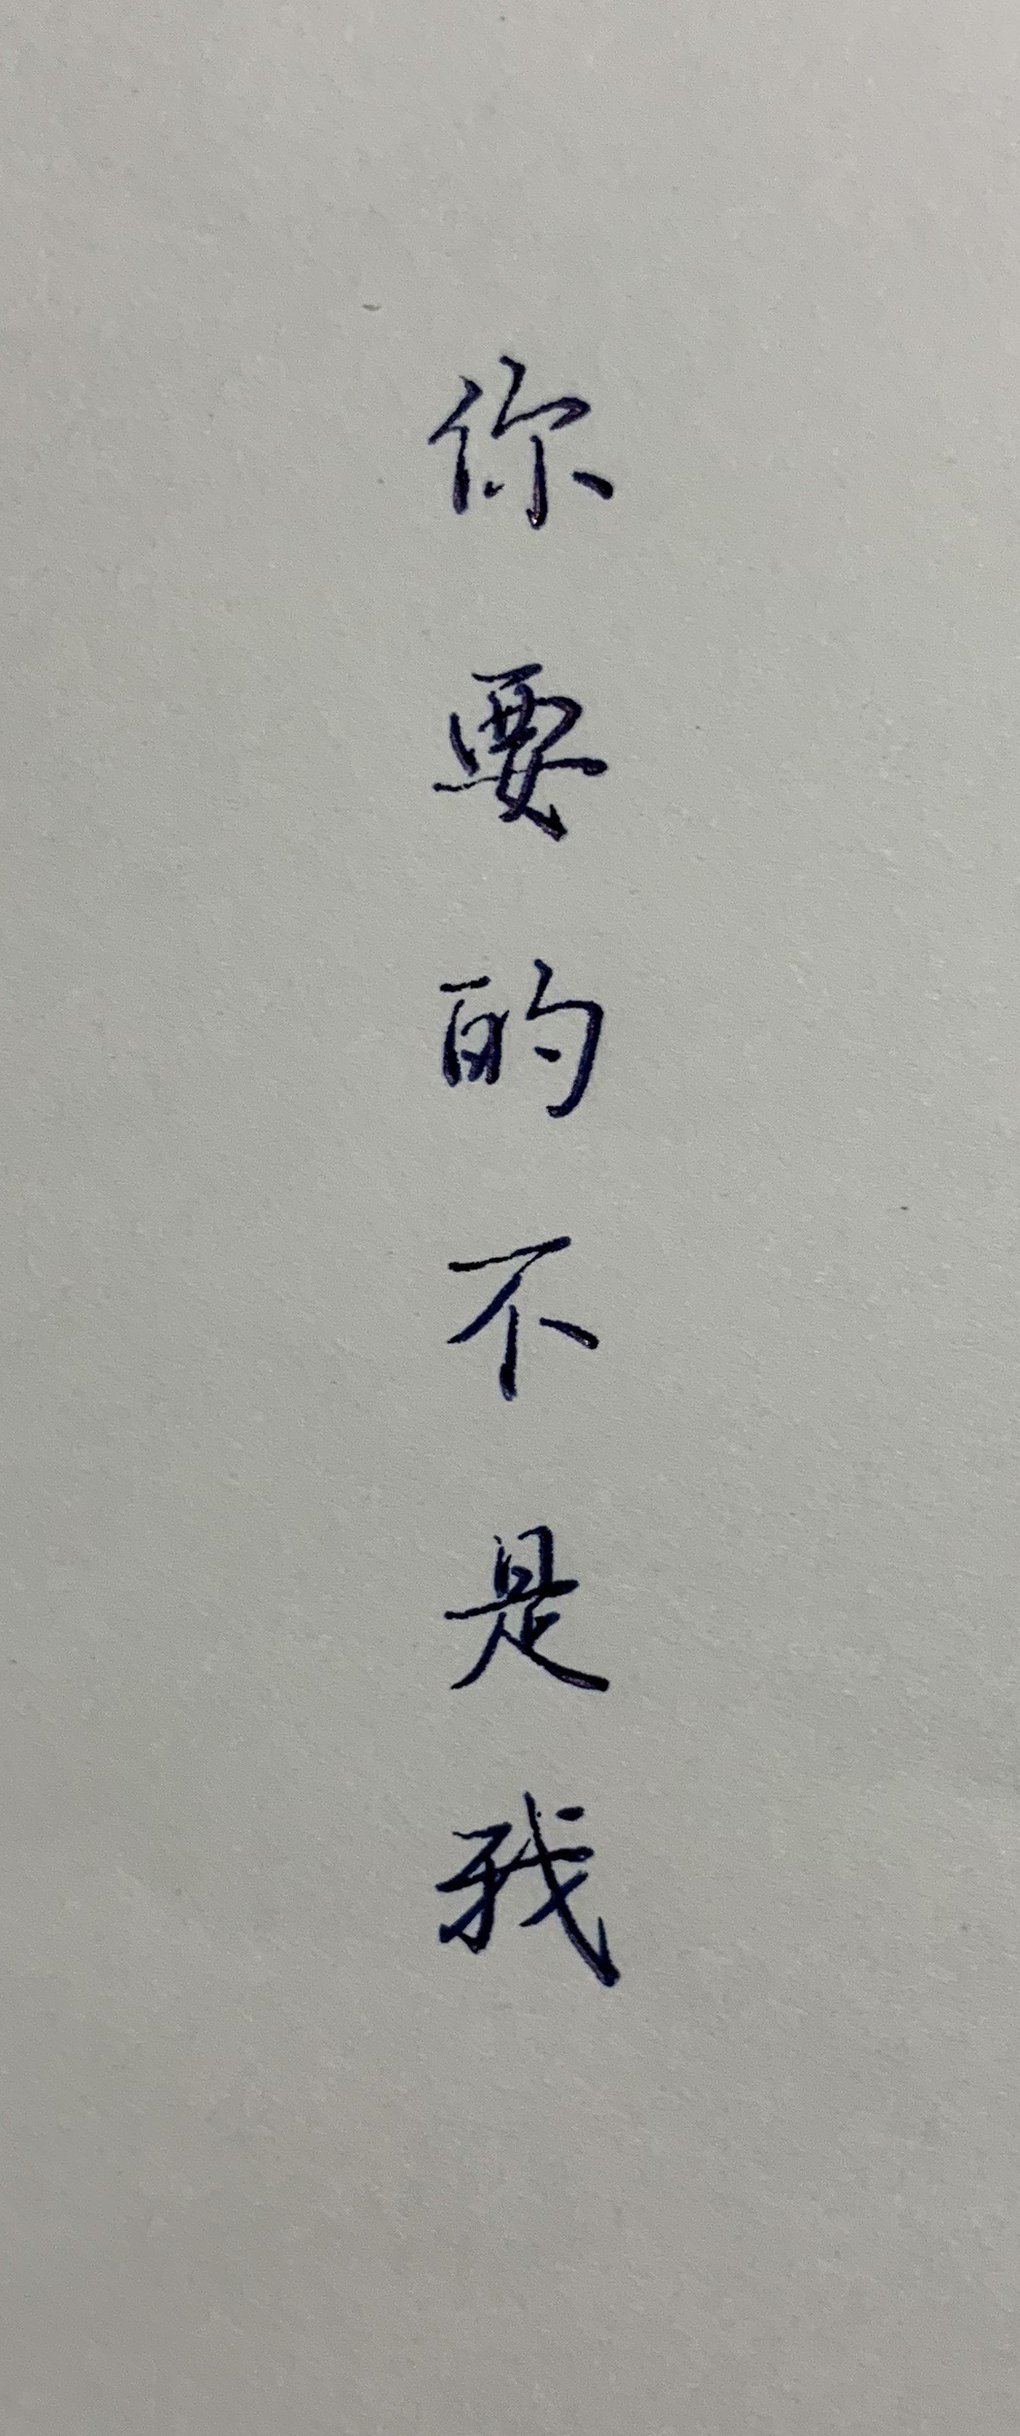 你要的不是我